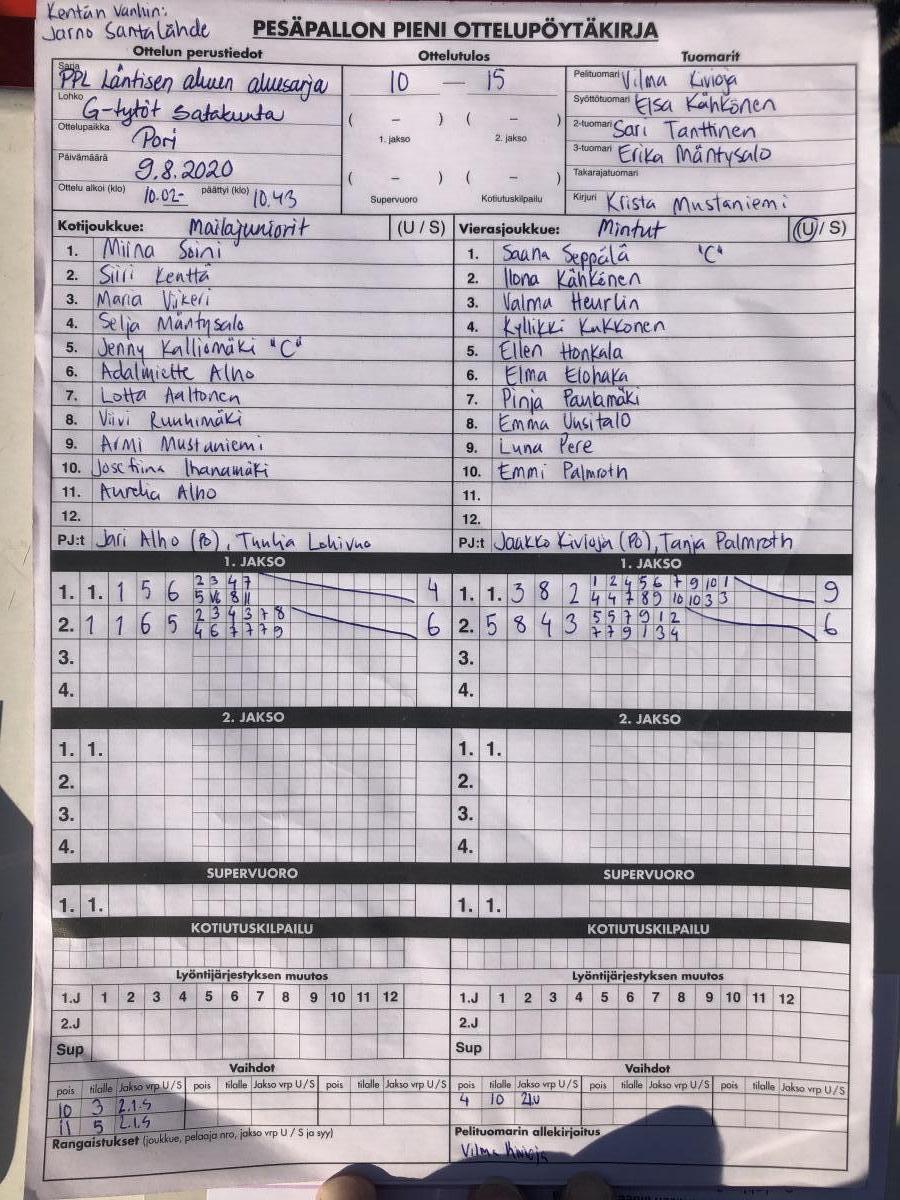 Kentän vanhin:
Jarno Santalahde
PESÄPALLON PIENI OTTELUPÖYTÄKIRJA
Ottelun perustiedot
Sarja
PPL Läntisen alueen aluesarja
Lohko
G-tytöt Satakunta
Ottelupaikka
Pori
Päivämäärä
9.8.2020
Ottelu alkoi (klo) 10.02- päättyi (klo) 10.43
Ottelutulos
10 — 15
( – ) ( – )
1. jakso 2. jakso
( – ) ( – )
Supervuoro Kotiutuskilpailu
Tuomarit
Pelituomari Vilma Kivioja
Syöttötuomari Elsa Kähkönen
2-tuomari Sari Tanttinen
3-tuomari Erika Mäntysalo
Takarajatuomari
Kirjuri Krista Mustaniemi
Kotijoukkue: Mailajuniorit (U / S)
1. Miina Soini
2. Siiri Kenttä
3. Maria Vikeri
4. Selja Mäntysalo
5. Jenny Kalliomäki "C"
6. Adalmiette Alho
7. Lotta Aaltonen
8. Viivi Ruuhimäki
9. Armi Mustaniemi
10. Josefiina Ihanamäki
11. Aurelia Alho
12.
PJ:t Jari Alho (PO), Tuulia Lohivuo
Vierasjoukkue: Mintut (U / S)
1. Saana Seppälä "C"
2. Ilona Kähkönen
3. Valma Heurlin
4. Kyllikki Kukkonen
5. Ellen Honkala
6. Elma Elohaka
7. Pinja Paulamäki
8. Emma Uusitalo
9. Luna Pere
10. Emmi Palmroth
11.
12.
PJ:t Jaakko Kivioja (PO), Tanja Palmroth
1. JAKSO
1. 1. 1 5 6 2 3 4 7 4
5 8 11
2. 1 1 6 5 2 3 4 3 7 8 6
4 6 7 7 7 9
3.
4.
1. JAKSO
1. 1. 3 8 2 1 2 4 5 6 7 9 10 1 9
4 4 7 8 9 10 10 3 3
2. 5 8 4 3 5 5 7 9 1 2 6
7 7 9 1 3 4
3.
4.
2. JAKSO
1. 1.
2.
3.
4.
2. JAKSO
1. 1.
2.
3.
4.
SUPERVUORO
1. 1.
SUPERVUORO
1. 1.
KOTIUTUSKILPAILU
KOTIUTUSKILPAILU
Lyöntijärjestyksen muutos
1.J 1 2 3 4 5 6 7 8 9 10 11 12
2.J
Sup
Lyöntijärjestyksen muutos
1.J 1 2 3 4 5 6 7 8 9 10 11 12
2.J
Sup
Vaihdot
pois tilalle Jakso vrp U/S pois tilalle Jakso vrp U/S pois tilalle Jakso vrp U/S
10 3 2.1.S
11 5 2.1.S
Rangaistukset (joukkue, pelaaja nro, jakso vrp U / S ja syy)
Vaihdot
pois tilalle Jakso vrp U/S pois tilalle Jakso vrp U/S pois tilalle Jakso vrp U/S
4 10
Pelituomarin allekirjoitus
Vilma Kivioja